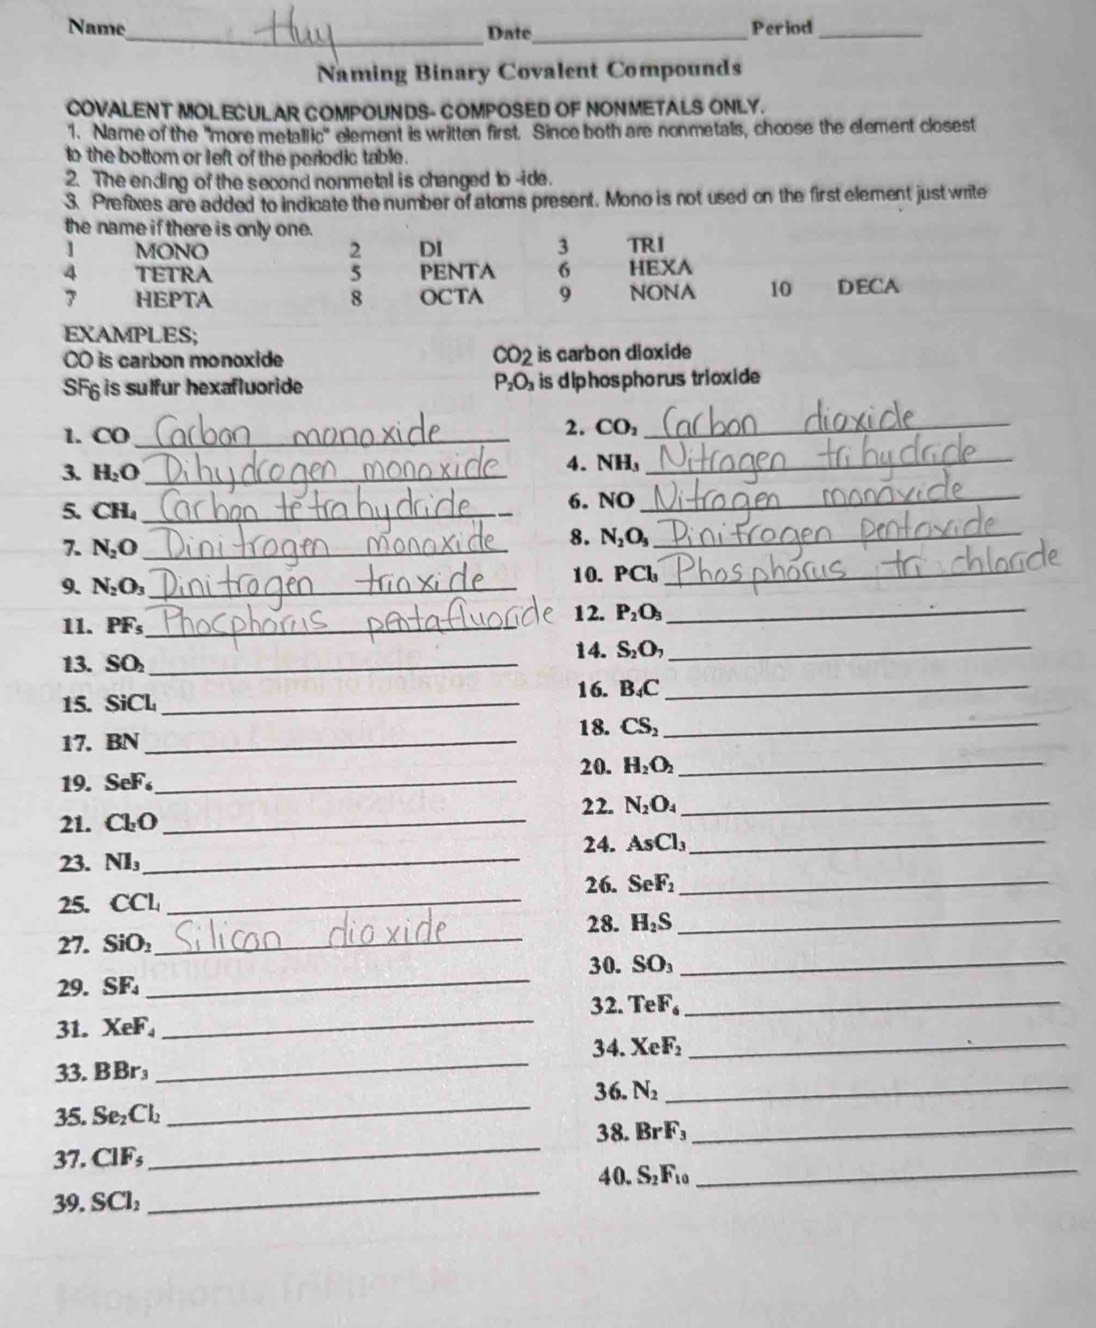 Name Huy Date Period
Naming Binary Covalent Compounds
COVALENT MOLECULAR COMPOUNDS- COMPOSED OF NONMETALS ONLY.
1. Name of the "more metallic" element is written first. Since both are nonmetals, choose the element closest
to the bottom or left of the periodic table.
2. The ending of the second nonmetal is changed to -ide.
3. Prefixes are added to indicate the number of atoms present. Mono is not used on the first element just write
the name if there is only one.
1 MONO 2 DI 3 TRI
4 TETRA 5 PENTA 6 HEXA
7 HEPTA 8 OCTA 9 NONA 10 DECA
EXAMPLES;
CO is carbon monoxide CO2 is carbon dioxide
SF6 is sulfur hexafluoride P₂O₃ is diphosphorus trioxide
1. CO Carbon monoxide 2. CO₂ Carbon dioxide
3. H₂O Dihydrogen monoxide 4. NH₃ Nitrogen trihydride
5. CH₄ Carbon tetrahydride 6. NO Nitrogen monoxide
7. N₂O Dinitrogen monoxide 8. N₂O₅ Dinitrogen pentoxide
9. N₂O₃ Dinitrogen trioxide 10. PCl₃ Phosphorus tri chloride
11. PF₅ Phosphorus pentafluoride 12. P₂O₅
13. SO₂ 14. S₂O₇
15. SiCl₄ 16. B₄C
17. BN 18. CS₂
19. SeF₆ 20. H₂O₂
21. Cl₂O 22. N₂O₄
23. NI₃ 24. AsCl₃
25. CCl₄ 26. SeF₂
27. SiO₂ Silicon dioxide 28. H₂S
29. SF₄ 30. SO₃
31. XeF₄ 32. TeF₆
33. BBr₃ 34. XeF₂
35. Se₂Cl₂ 36. N₂
37. ClF₅ 38. BrF₃
39. SCl₂ 40. S₂F₁₀